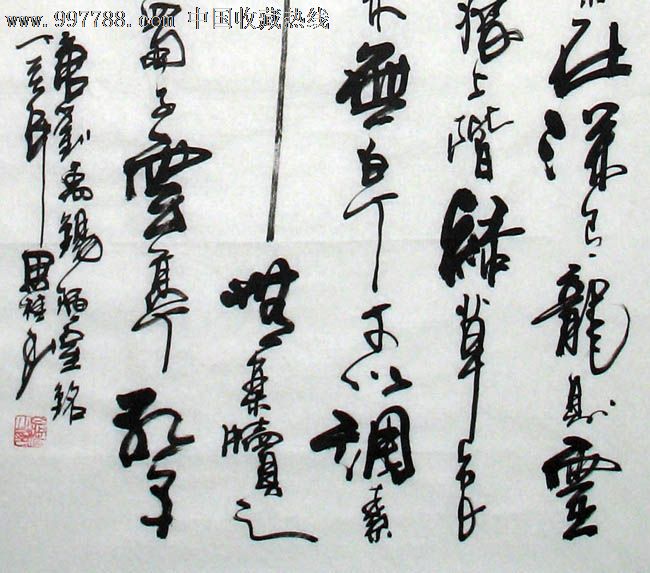 www.997788.com 中国收藏热线
在深有龙则靈
痕上階緑草色
無白丁可以調素
無案牘之
蜀子雲亭孔子
唐劉禹錫陋室銘